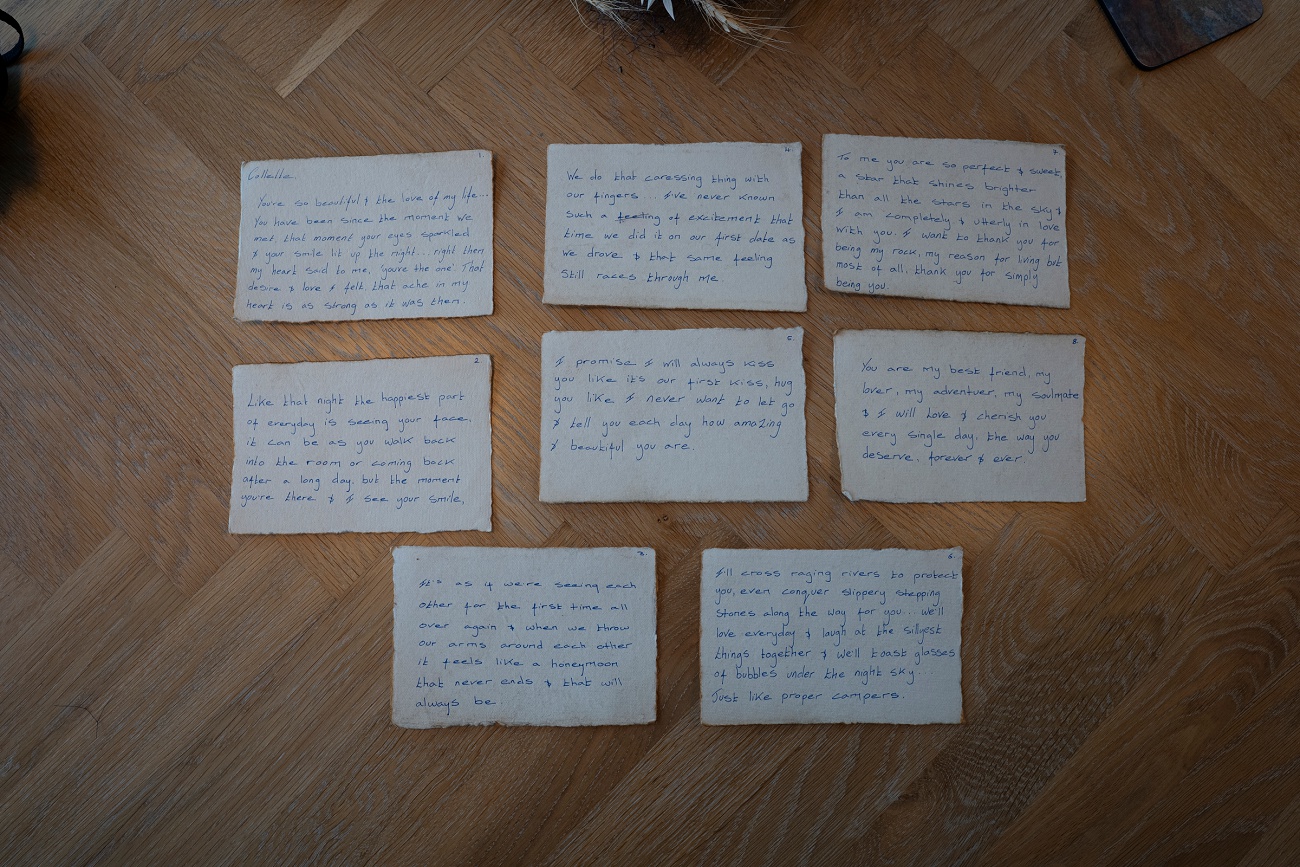 1.
Collette.
You're so beautiful & the love of my life...
You have been since the moment we
met, that moment your eyes sparkled
& your smile lit up the night... right then
my heart said to me, 'you're the one'. That
desire & love I felt, that ache in my
heart is as strong as it was then.
2.
Like that night the happiest part
of everyday is seeing your face,
it can be as you walk back
into the room or coming back
after a long day, but the moment
you're there & I see your smile,
3.
It's as if we're seeing each
other for the first time all
over again & when we throw
our arms around each other
it feels like a honeymoon
that never ends & that will
always be.
4.
We do that caressing thing with
our fingers... I've never known
such a feeling of excitement that
time we did it on our first date as
we drove & that same feeling
still races through me.
5.
I promise I will always kiss
you like its our first kiss, hug
you like I never want to let go
& tell you each day how amazing
& beautiful you are.
6.
I'll cross raging rivers to protect
you, even conquer slippery stepping
stones along the way for you... we'll
love everyday & laugh at the sillyest
things together & we'll toast glasses
of bubbles under the night sky...
Just like proper campers.
7.
To me you are so perfect & sweet,
a star that shines brighter
than all the stars in the sky &
I am completely & utterly in love
with you. I want to thank you for
being my rock, my reason for living but
most of all, thank you for simply
being you.
8.
You are my best friend, my
lover, my adventuer, my soulmate
& I will love & cherish you
every single day, the way you
deserve, forever & ever.